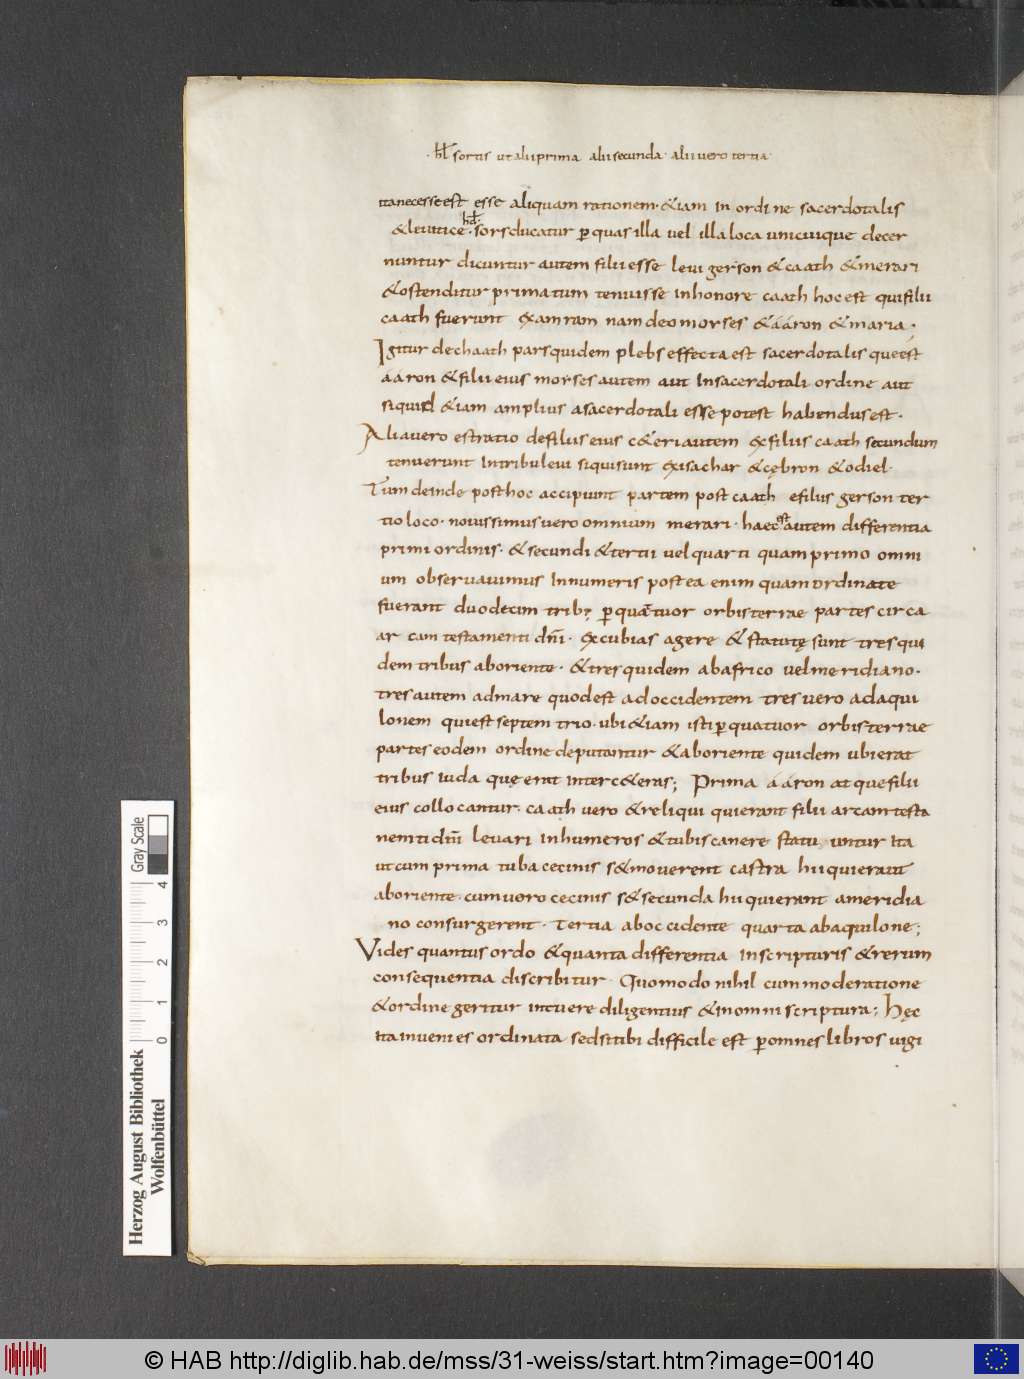 ·hł· sortis ut alii prima alii secunda· alii uero tertia·
ita necesse est esse aliquam rationem· &iam in ordine sacerdotalis
hđ·
& leuitice· sors ducatur p quas illa uel illa loca unicuique decer
nuntur dicuntur autem filii esse leui gerson & caath & merari
& ostenditur primatum tenuisse in honore caath hoc est qui filii
caath fuerunt ex amram nam deo morses & aáron & maria·
Igitur de chaath pars quidem plebs effecta est sacerdotalis que est
aáron & filii eius morses autem aut in sacerdotali ordine aut
siquid &iam amplius a sacerdotali esse potest habendus est·
Alia uero est ratio de filiis eius c&eri autem ex filiis caath secundum
tenuerunt in tribu leui siqui sunt ex isachar & cębron & odiel·
Tum deinde post hoc accipiunt partem post caath e filiis gerson ter
tio loco· nouissimus uero omnium merari· haec est autem differentia
primi ordinis· & secundi & tertii uel quarti quam primo omni
um obseruauimus In numeris postea enim quam ordinate
fuerant duodecim trib; p quattuor orbis terrae partes circa
ar cam testamenti dñi· excubias agere & statutę sunt tres qui
dem tribus ab oriente· & tres quidem ab africo uel meridiano·
tres autem ad mare quod est ad occidentem tres uero ad aqui
lonem qui est septem trio· ubi &iam isti p quatuor orbis terrae
partes eodem ordine deputantur & ab oriente quidem ubi erat
tribus iuda quę erat inter c&eras; Prima aáron atque filii
eius collocantur· caath uero & reliqui qui erant filii arcam testa
menti dñi leuari in humeros & tubis canere statuuntur ita
ut cum prima tuba cecinis s& mouerent castra hii qui erant
ab oriente· cum uero cecinis s& secunda hii qui erant a meridia
no consurgerent· tertia ab occidente quarta ab aquilone;
Vides quantus ordo & quanta differentia in scripturis & rerum
consequentia discribitur· Quomodo nihil cum moderatione
& ordine geritur intuere diligentius & in omni scriptura; Hęc
ita inueni es ordinata sed si tibi difficile est p omnes libros uigi
Herzog August Bibliothek
Wolfenbüttel
0 1 2 3 4
Gray Scale
© HAB http://diglib.hab.de/mss/31-weiss/start.htm?image=00140